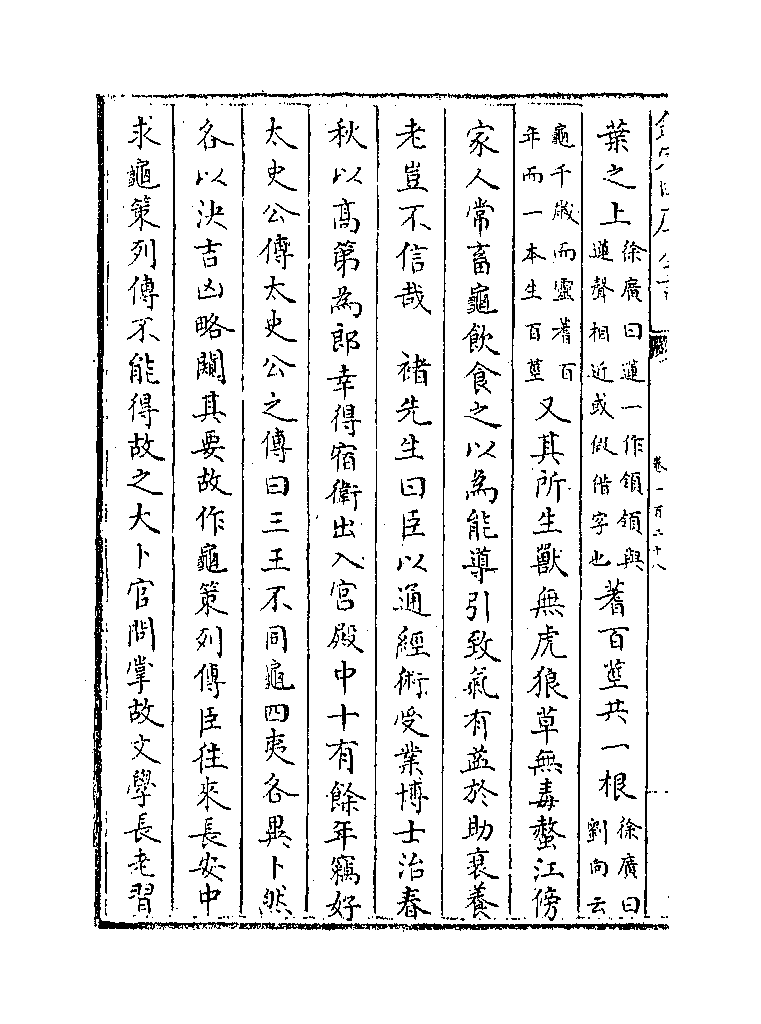 葉之上徐廣曰蓮一作領領與蓮聲相近或假借字也蓍百莖共一根徐廣曰劉向云
龜千歲而靈蓍百年而一本生百莖又其所生獸無虎狼草無毒螫江傍
家人常畜龜飲食之以為能導引致氣有益於助衰養
老豈不信哉　褚先生曰臣以通經術受業博士治春
秋以高第為郎幸得宿衛出入宮殿中十有餘年竊好
太史公傳太史公之傳曰三王不同龜四夷各異卜然
各以決吉凶略闚其要故作龜策列傳臣往來長安中
求龜策列傳不能得故之大卜官問掌故文學長老習
卷一百二十八